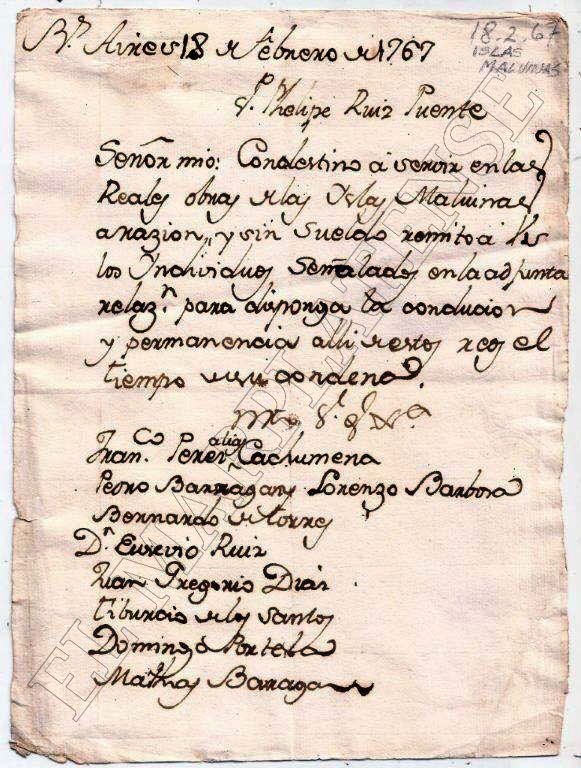 Bs. Aires 18 de Febrero de 1767
18.2.67
ISLAS
MALVINAS
Sr. Phelipe Ruiz Puente
Señor mio: Con destino à servir en las
Reales obras de las Yslas Malvinas
a razion, y sin Sueldo remito à Vs
los Yndividuos Señalados en la adjunta
relazn. para disponga la conducion
y permanencia alli de estos reos el
tiempo de su condena.
Franco. Perez alias Cachumena
Pedro Barragan y Lorenzo Barbosa
Bernardo de torres
Dn. Eusevio Ruiz
Juan Gregorio Diaz
tiburcio de los Santos
Domingo Portela
Mathias Barragan
EL MARPLATENSE